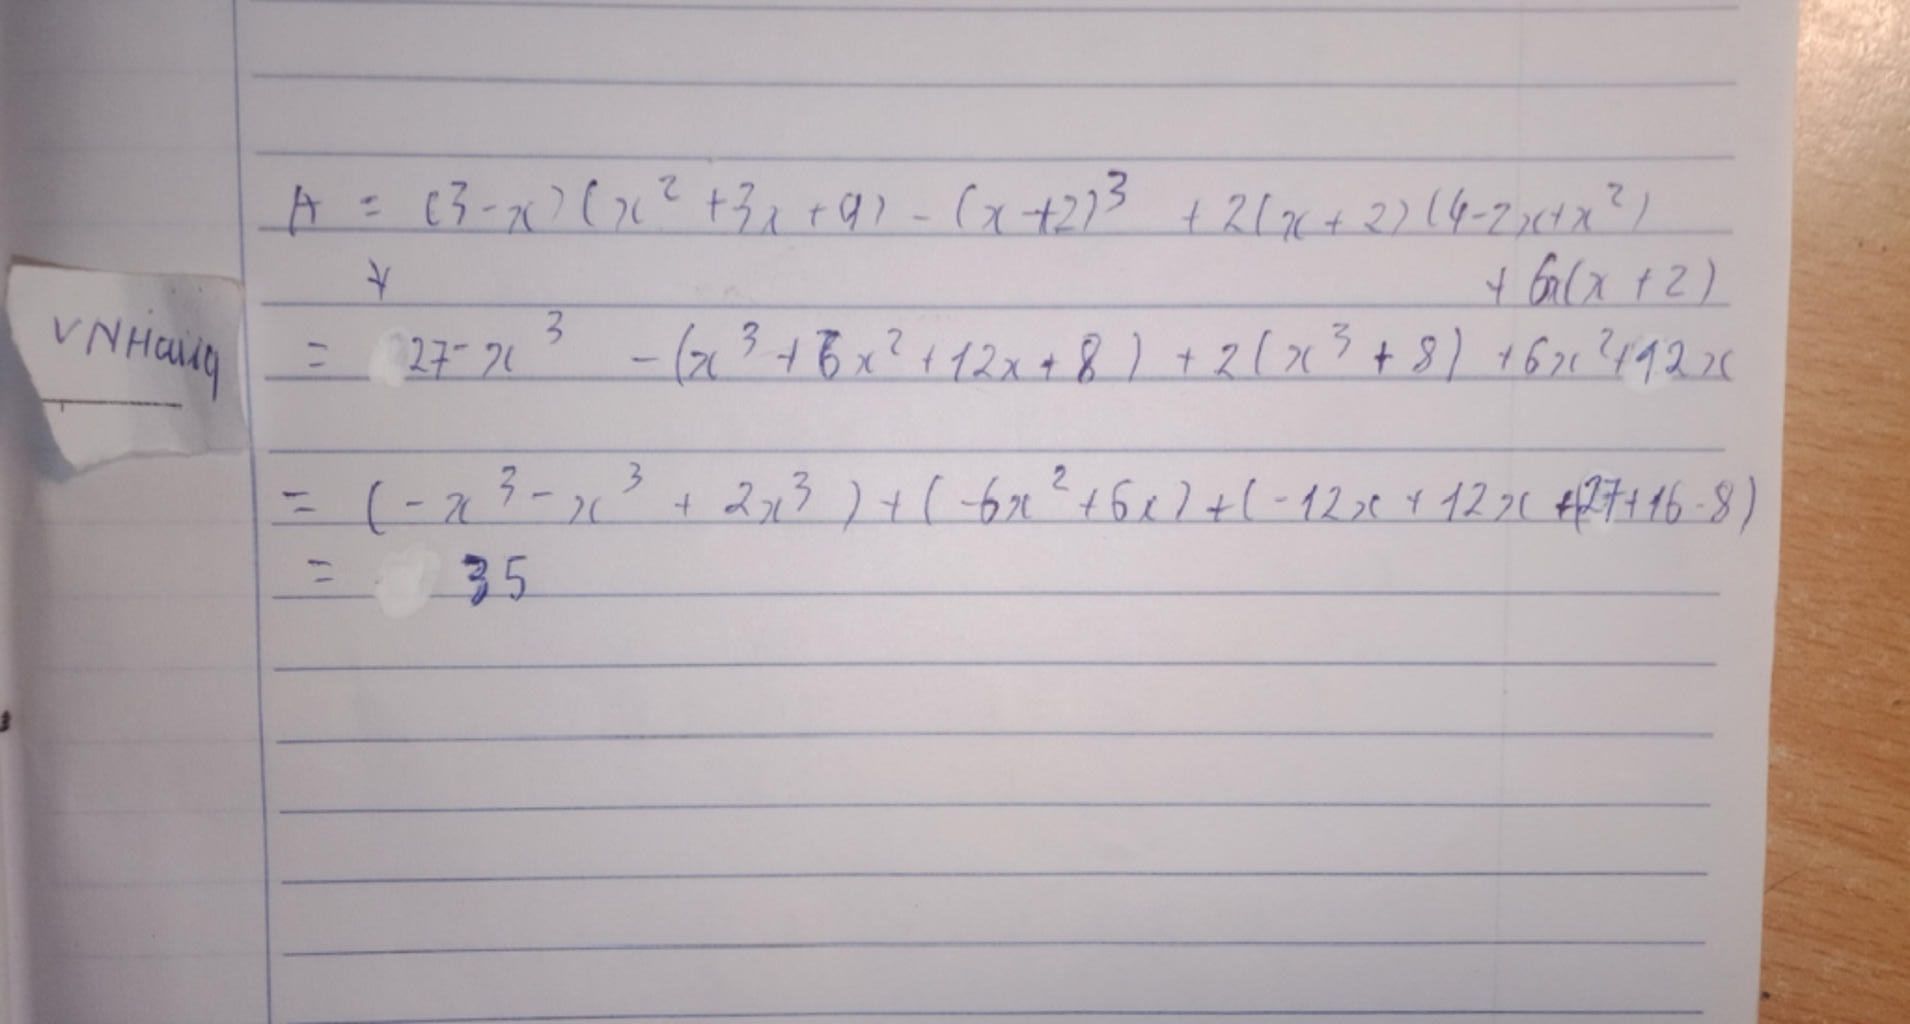 A = (3-x)(x² +3x +9) - (x+2)³ + 2(x+2)(4-2x+x²)
+ 6x(x+2)
VNHaing
= 27-x³ -(x³+6x²+12x+8) + 2(x³+8) +6x²+12x
= (-x³-x³ + 2x³) + (-6x²+6x) + (-12x + 12x +(27+16-8)
= 35